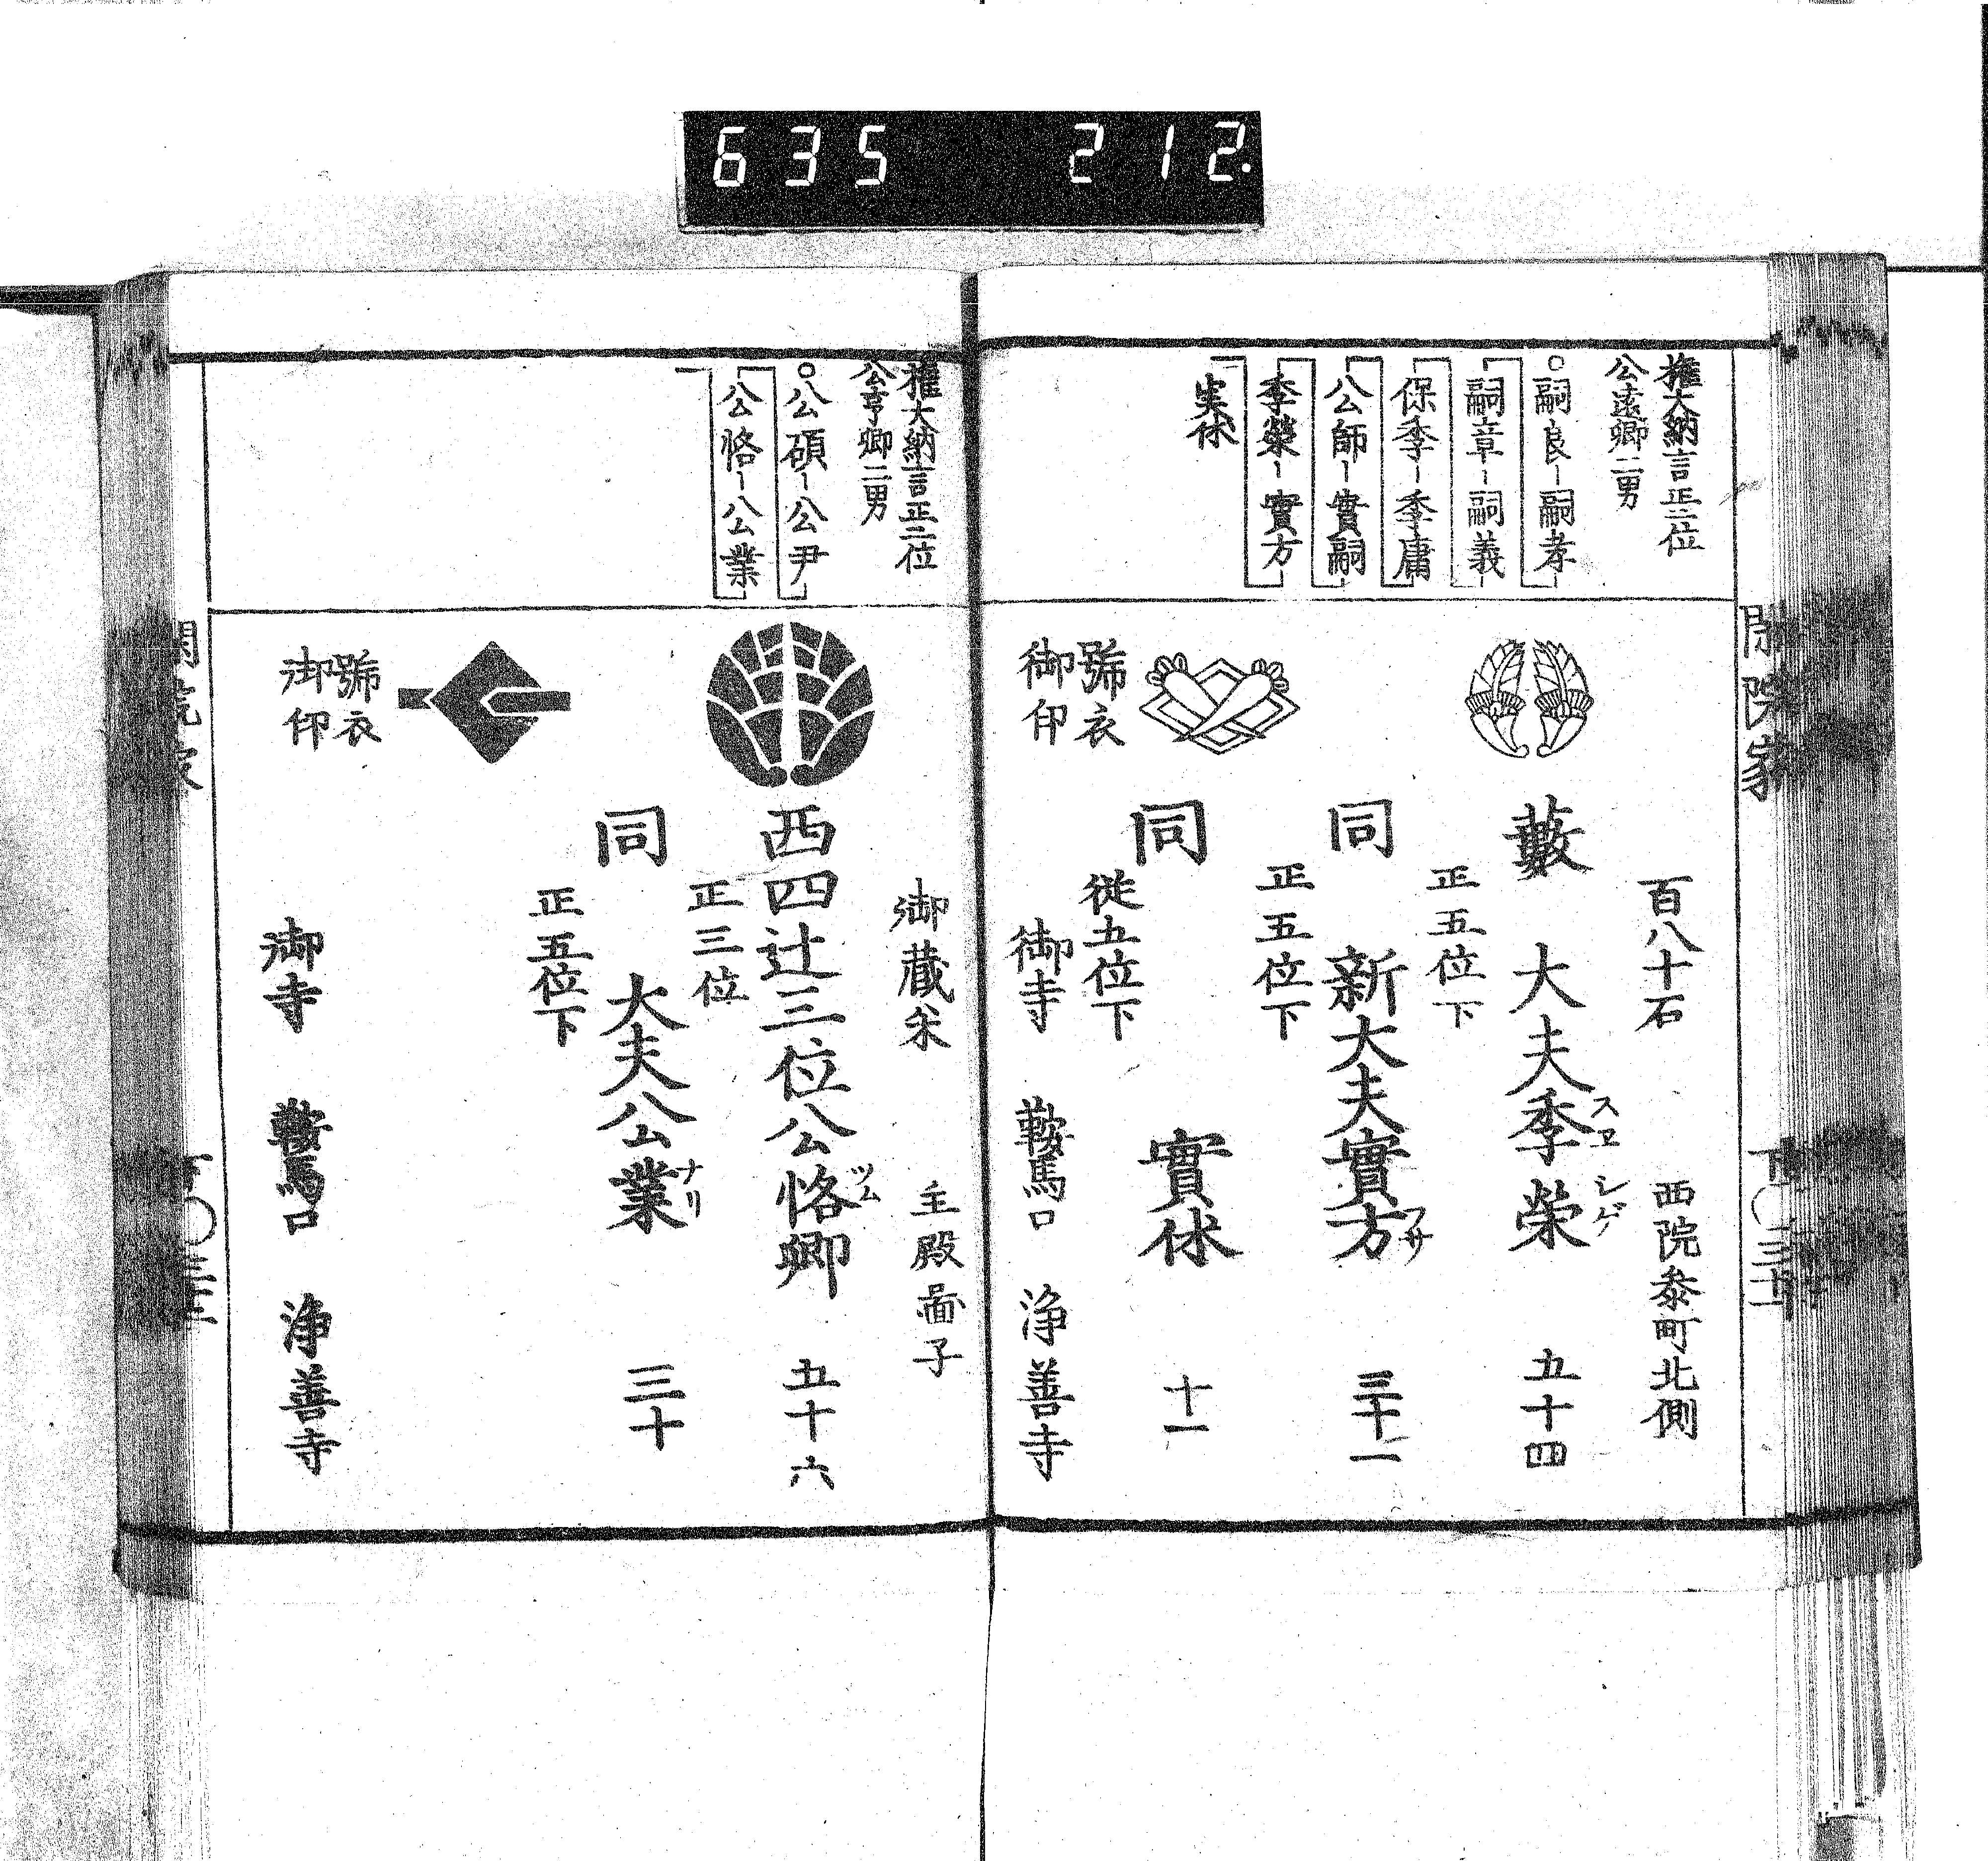 635 212.
閑院家
權大納言正二位
公遠卿二男
嗣良-嗣孝
嗣章-嗣義
保季-季庸
公師-實嗣
季榮-實方
実休
百八十石
西院参町北側
藪 大夫季榮 五十四
スヱ シゲ
正五位下
同 新大夫實方 三十一
フサ
正五位下
同 實休 十一
從五位下
號衣
御印
御寺 鞍馬口 淨善寺
權大納言正二位
公亨卿二男
公碩-公尹
公恪-公業
御蔵米
主殿昼子
西四辻三位公恪卿 五十六
ツム
正三位
同 大夫公業 三十
ナリ
正五位下
號衣
御印
御寺 鞍馬口 淨善寺